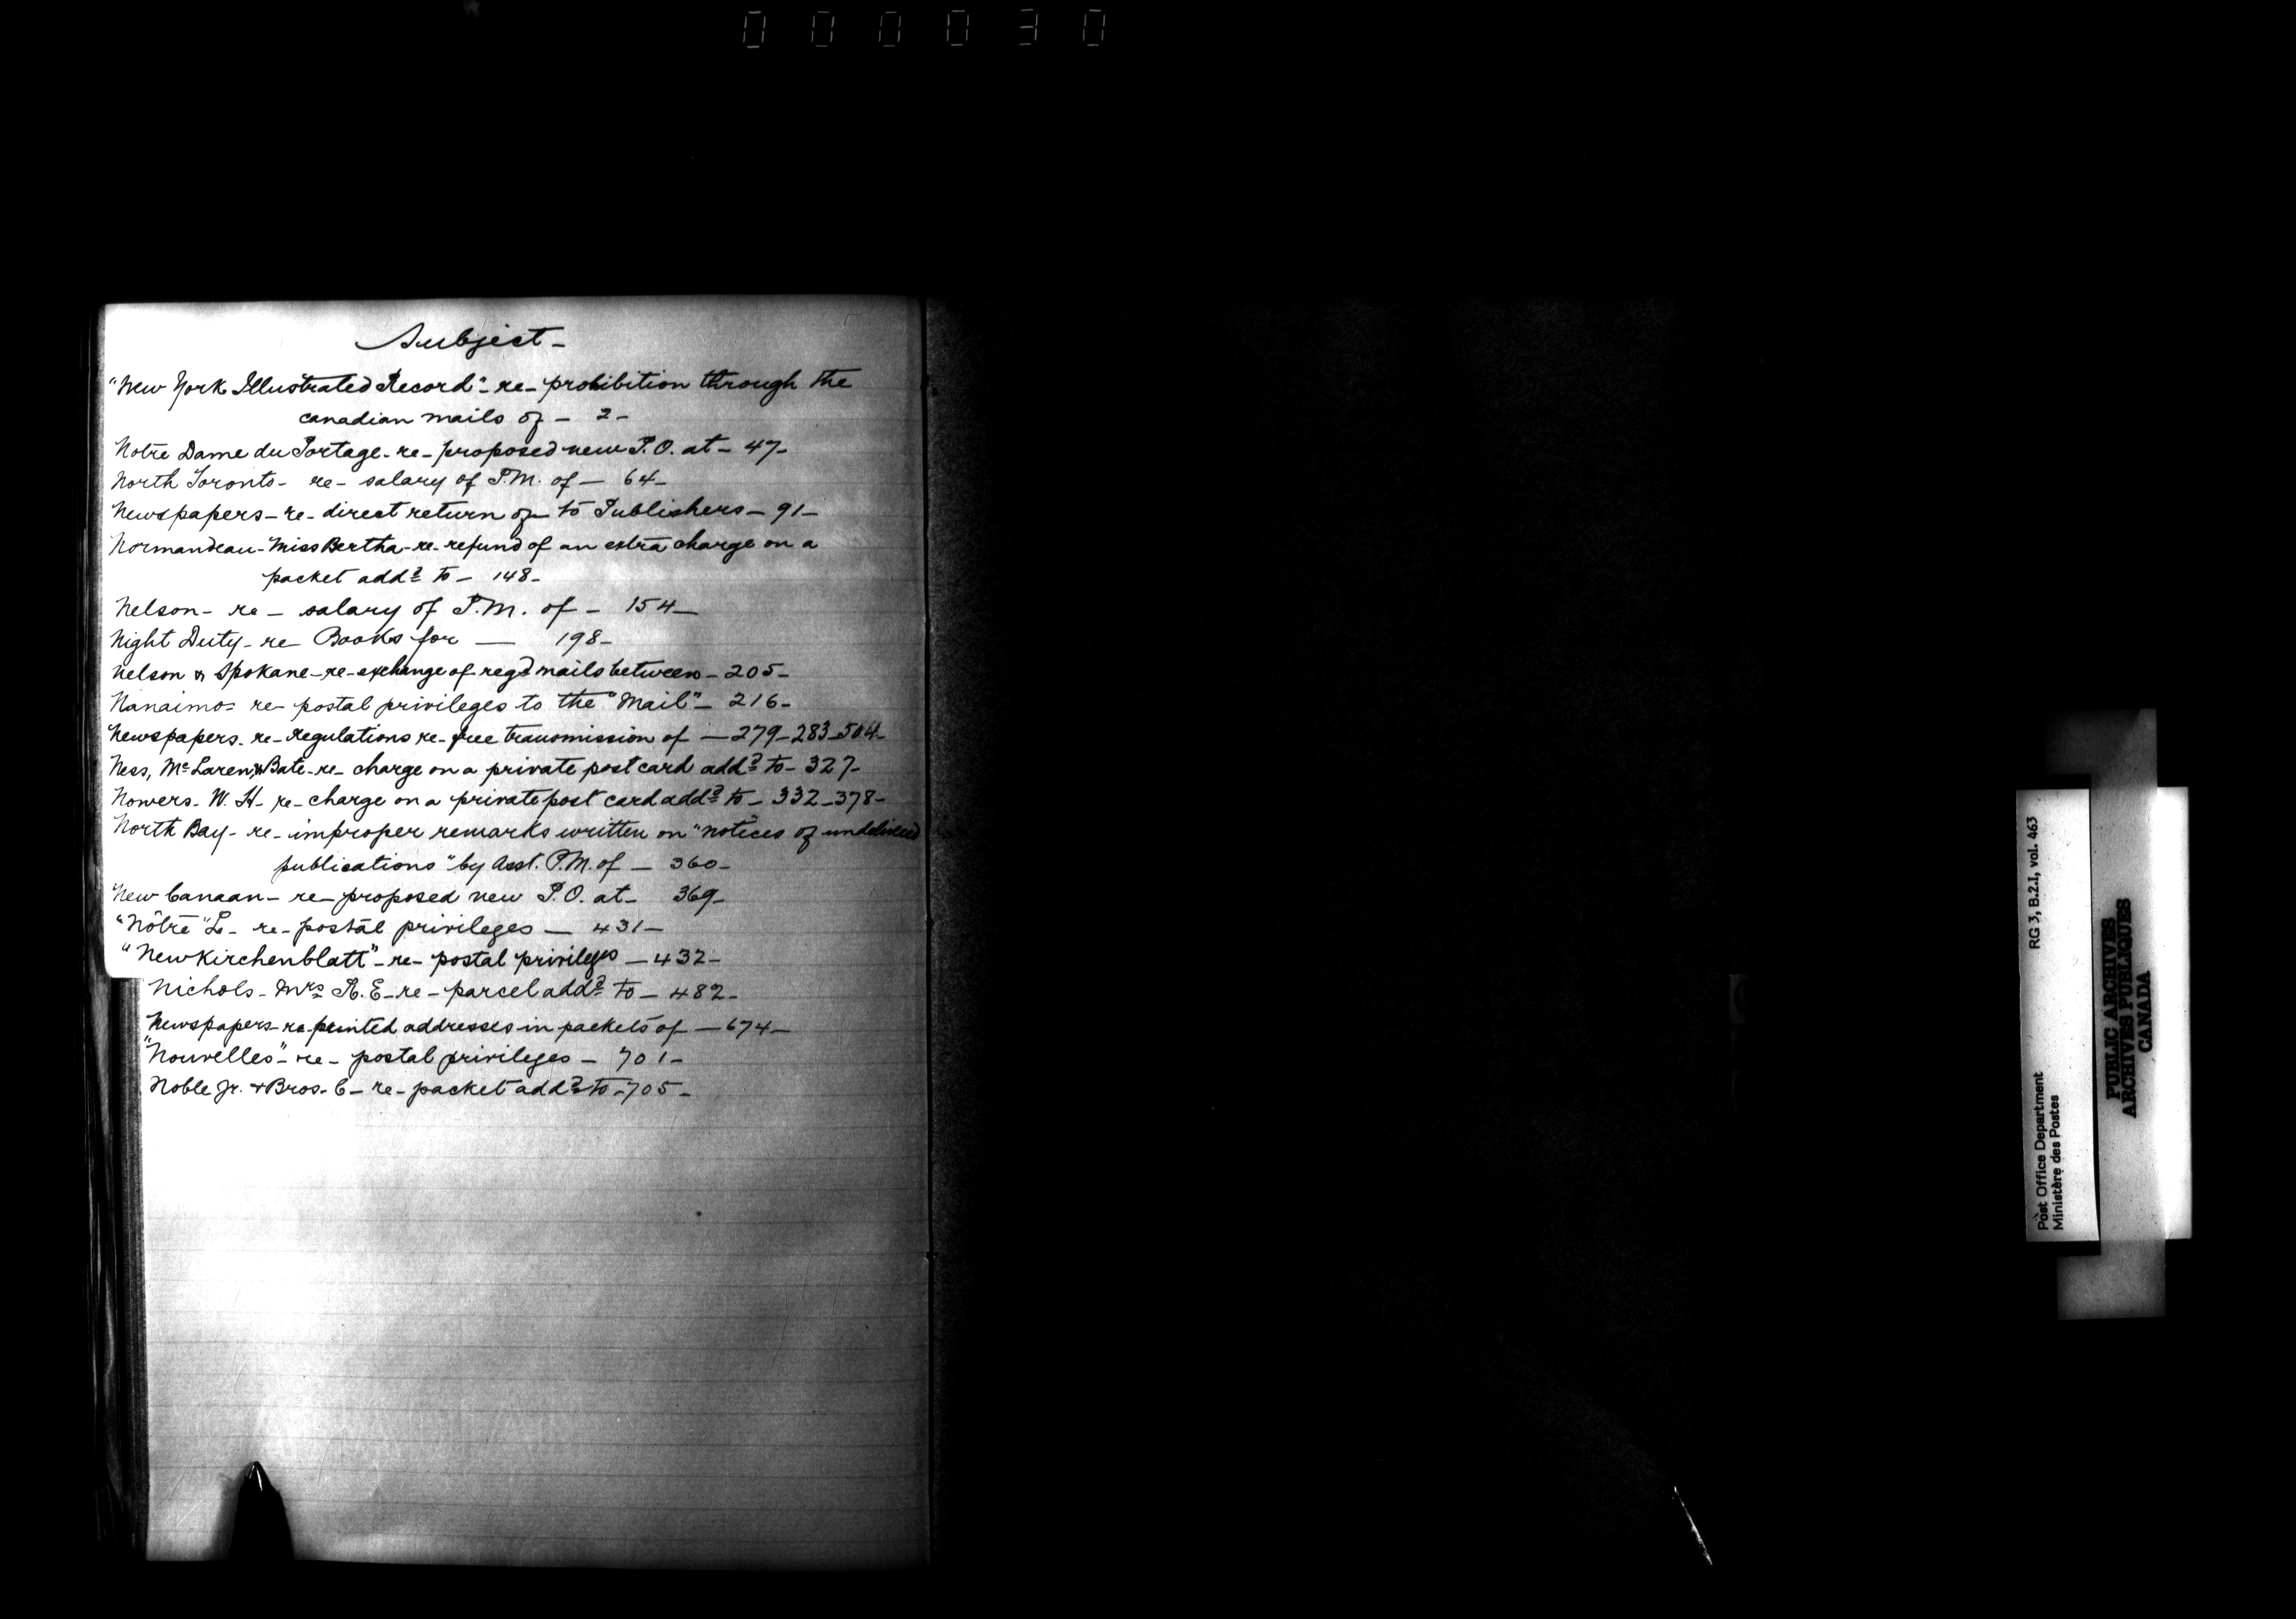 000030
Subject -
"New York Illustrated Record" - re - prohibition through the
canadian mails of - 2 -
Notre Dame du Portage - re - proposed new P.O. at - 47 -
North Toronto - re - salary of P.M. of - 64 -
Newspapers - re - direct return of - to Publishers - 91 -
Normandeau - Miss Bertha - re - refund of an extra charge on a
packet add^d to - 148 -
Nelson - re - salary of P.M. of - 154 -
Night Duty - re Books for — 198 -
Nelson & Spokane - re - exchange of reg^d mails between - 205 -
Nanaimo - re - postal privileges to the "Mail" - 216 -
Newspapers - re - Regulations re - free transmission of - 279 - 283 - 504 -
Ness, McLaren & Bate - re - charge on a private post card add^d to - 327 -
Nowers - W. H - re - charge on a private post card add^d to - 332 - 378 -
North Bay - re - improper remarks written on "notices of undelivered
publications" by Asst. P.M. of - 360 -
New Canaan - re - proposed new P.O. at - 369 -
"Nôtre" Le - re - postal privileges - 431 -
"New Kirchenblatt" - re - postal privileges - 432 -
Nichols - Mrs A. E - re - parcel add^d to - 482 -
Newspapers - re printed addresses in packets of - 674 -
"Nouvelles" - re - postal privileges - 701 -
Noble Jr. & Bros - C - re - packet add^d to - 705 -
Post Office Department RG 3, B.2.I, vol. 463
Ministère des Postes
PUBLIC ARCHIVES
ARCHIVES PUBLIQUES
CANADA